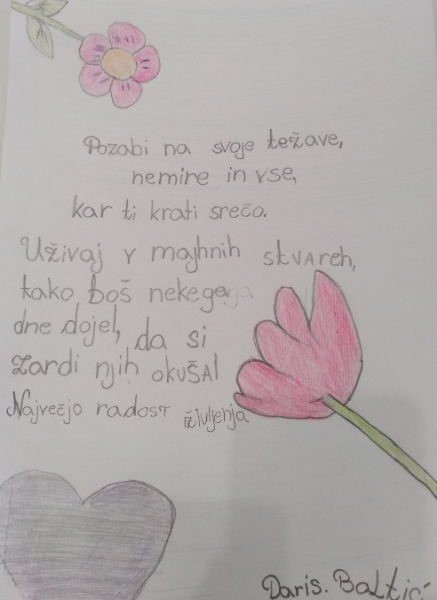 Pozabi na svoje težave,
nemire in vse,
kar ti krati srečo.
Uživaj v majhnih stvareh,
tako boš nekega
dne dojel, da si
zardi njih okušal
Največjo radost življenja
Daris. Baltić